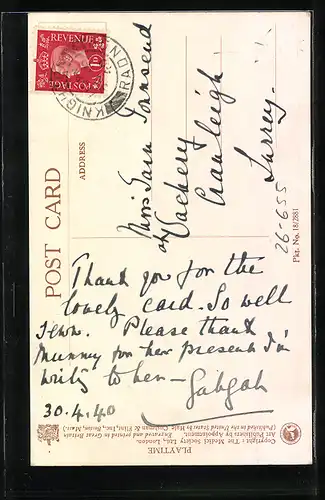 REVENUE
1D
POSTAGE
KNIGH
RADN
POST CARD
ADDRESS
Miss Sara Townsend
Vachery
Cranleigh
Surrey.
26-655
Pkt. No. 18/2881
Thank you for the
lovely card. So well
sewn. Please thank
Mummy for her present I'm
writing to her —
30.4.40
PLAYTIME
Copyright The Medici Society Ltd., London.
Art Publishers by Appointment. Engraved and printed in Great Britain
(Published in the United States by Hale, Cushman & Flint, Inc., Boston, Mass.)